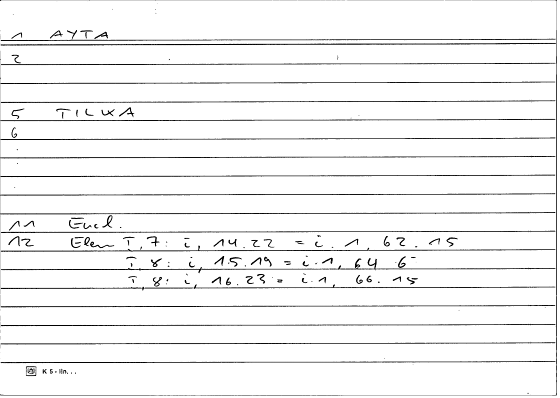 1 AYTA
2
5 TILWA
6
11 Eucl.
12 Elem I, 7: i, 14.22 = i.1, 62.15
I, 8: i, 15.19 = i.1, 64 6
I, 8: i, 16.23 = i.1, 66.15
K 5 - lin. . .